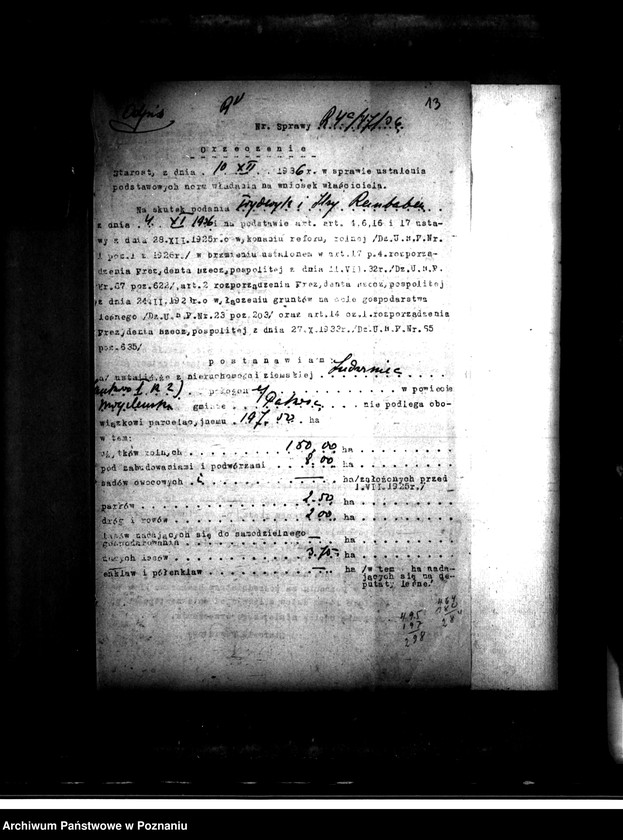 Odpis
13
Nr. Sprawy R.4c/47/36.
Orzeczenie
Starost, z dnia . 10 XII . . 1936 r. w sprawie ustalenia
podstawowych norm władania na wniosek właściciela.
Na skutek podania Fryderyk i
z dnia . 4. XI 1936 i na podstawie art. art. 4,6,16 i 17 usta-
wy z dnia 28.XII.1925r.o wykonaniu reformy rolnej /Dz.U.R.P.Nr.
1 poz.1 z 1926r./ w brzmieniu ustalonem w art.17 p.4 rozporzą-
dzenia Prezydenta Rzeczypospolitej z dnia 11.VII.32r./Dz.U.R.P.
Nr.67 poz.622/,art.2 rozporządzenia Prezydenta Rzeczypospolitej
z dnia 24.II.1928r.o wyłączeniu gruntów na cele gospodarstwa
leśnego /Dz.U.R.P.Nr.23 poz.203/ oraz art.14 cz.1.rozporządzenia
Prezydenta Rzeczypospolitej z dnia 27.X.1933r./Dz.U.R.P.Nr.85
poz.635/
postanawiam:
a/ ustalić,że z nieruchomości ziemskiej
położon ej . . . w powiecie
gminie Pakość . . nie podlega obo-
wiązkowi parcelacyjnemu . 197.50 . ha
w tem:
użytków rolnych . . . 180.00 ha . . .
pod zabudowaniami i podwórzami . . . 8.00 ha . . .
sadów owocowych . . . — ha/założonych przed
1.VII.1925r./
parków . . . 2.50 ha . . .
dróg i rowów . . . 2.00 ha . . .
lasów nadających się do samodzielnego
gospodarowania . . . — ha . . .
innych lasów . . . 3.75 ha . . .
enklaw i półenklaw . . . — ha /w tem — ha nada-
jących się na de-
putaty leśne/
495
197
298
Archiwum Państwowe w Poznaniu